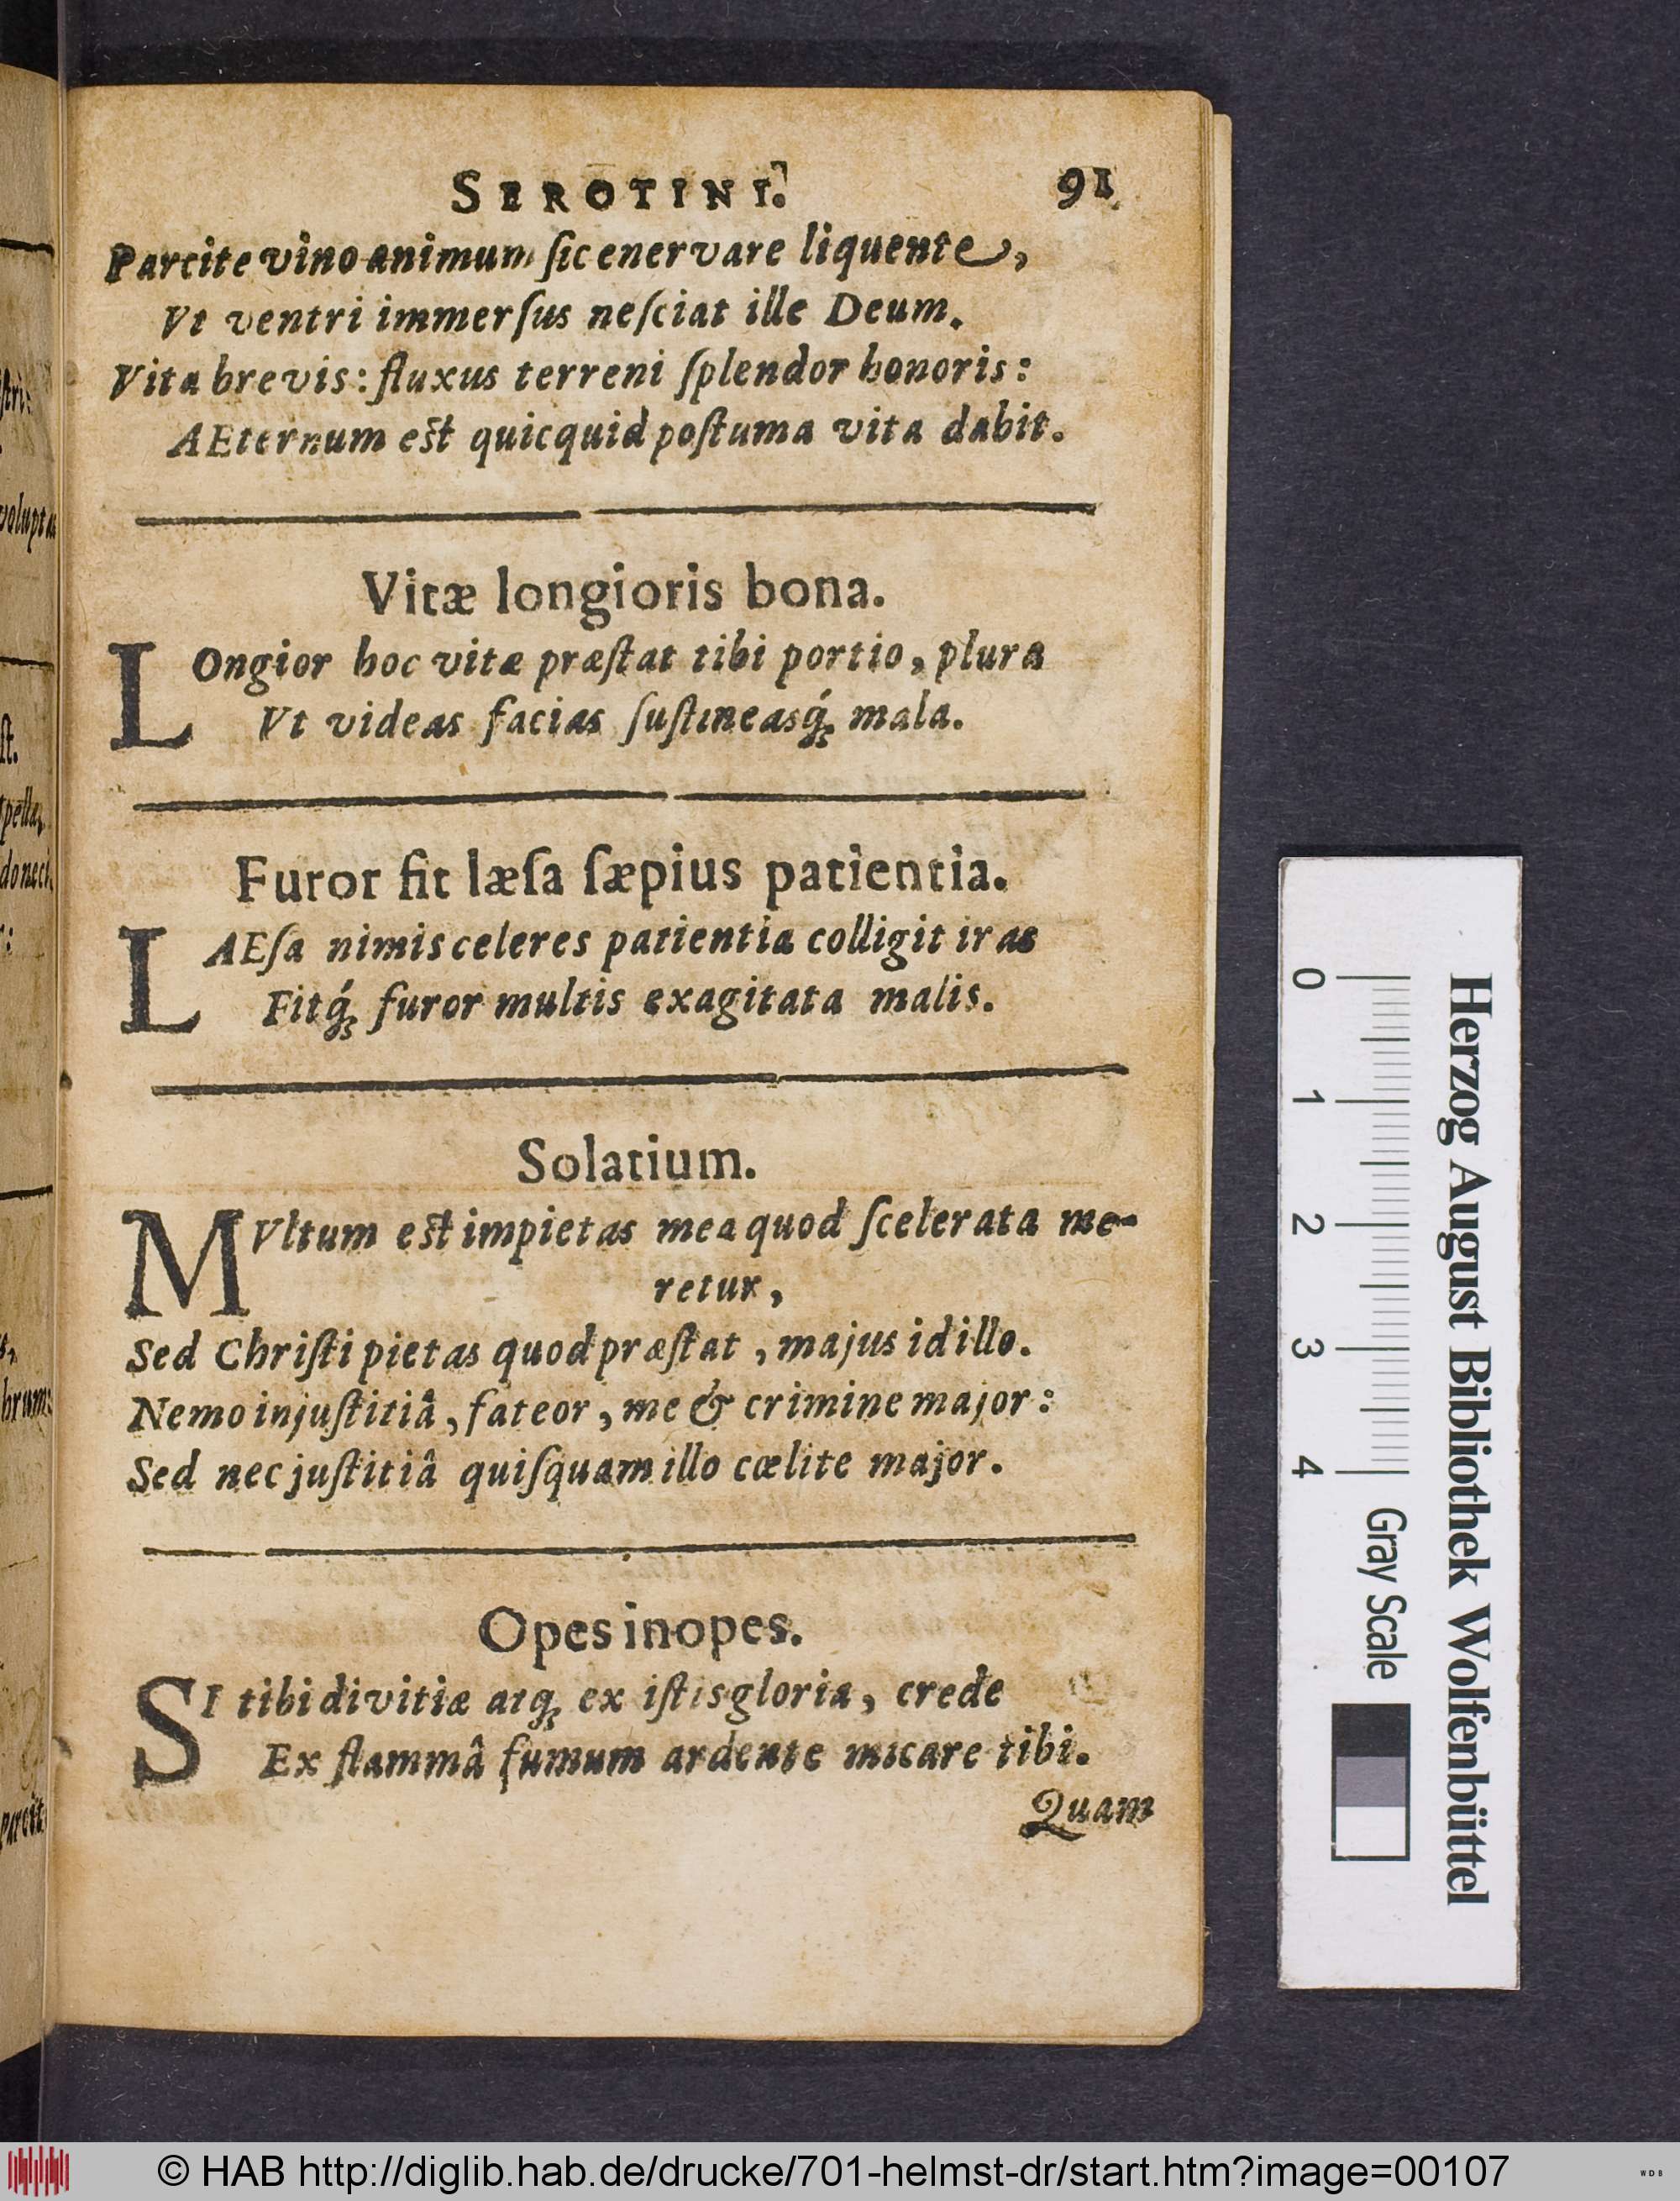 SEROTINI. 91
Parcite vino animum ſic enervare liquente,
Vt ventri immerſus neſciat ille Deum.
Vita brevis: fluxus terreni ſplendor honoris:
AEternum eſt quicquid poſtuma vita dabit.
Vitæ longioris bona.
LOngior hoc vitæ præſtat tibi portio, plura
Vt videas facias ſuſtineasq́; mala.
Furor fit læſa ſæpius patientia.
LAEſa nimis celeres patientia colligit iras
Fitq́; furor multis exagitata malis.
Solatium.
MVltum eſt impietas mea quod ſcelerata me-
retur,
Sed Chriſti pietas quod præſtat, majus id illo.
Nemo injuſtitiâ, fateor, me & crimine major:
Sed nec juſtitiâ quiſquam illo cœlite major.
Opes inopes.
SI tibi divitiæ atq; ex iſtis gloria, crede
Ex flammâ fumum ardente micare tibi.
Quam
Herzog August Bibliothek Wolfenbüttel
0 1 2 3 4 Gray Scale
© HAB http://diglib.hab.de/drucke/701-helmst-dr/start.htm?image=00107